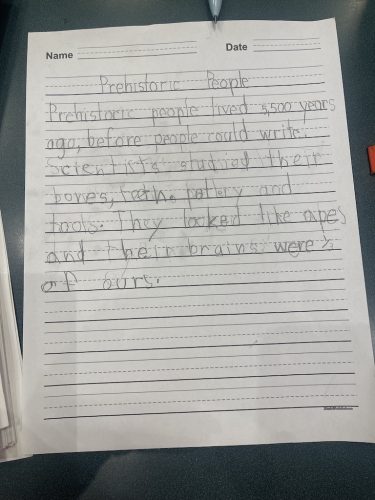 Name Date
Prehistoric People
Prehistoric people lived 5,500 years
ago, before people could write.
Scientists studied their
bones, teeth, pottery and
tools. They looked like apes
and their brains were
of ours.